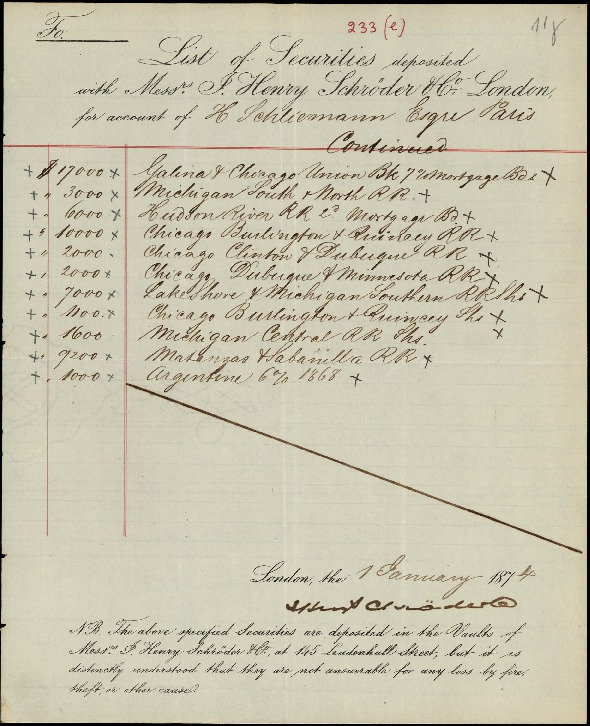 Fo.
233 (e)
List of Securities deposited
with Messrs. J. Henry Schröder & Co. London,
for account of H Schliemann Esqre Paris
Continued
+ $ 17000 x Galina & Chicago Union Bk 7% Mortgage Bds x
+ " 3000 x Michigan South & North RR. +
+ " 6000 x Hudson River RR 2d Mortgage Bd. +
+ " 10000 x Chicago Burlington & Quincey RR x
+ " 2000 . Chicago Clinton & Dubuque RR x
+ " 2000 x Chicago Dubuque & Minnesota RR x
+ " 7000 x Lake Shore & Michigan Southern RR Shs x
+ " 1100 x Chicago Burlington & Quincey Shs x
+ " 1600 Michigan Central RR Shs. x
+ " 9200 x Matanzas & Sabanilla RR x
+ " 1000 x Argentine 6% 1868 x
London, the 1 January 1874
J Henry Schröder & Co
N.B. The above specified Securities are deposited in the Vaults of
Messrs. J. Henry Schröder & Co., at 145 Leadenhall Street; but it is
distinctly understood that they are not answerable for any loss by fire,
theft, or other cause.